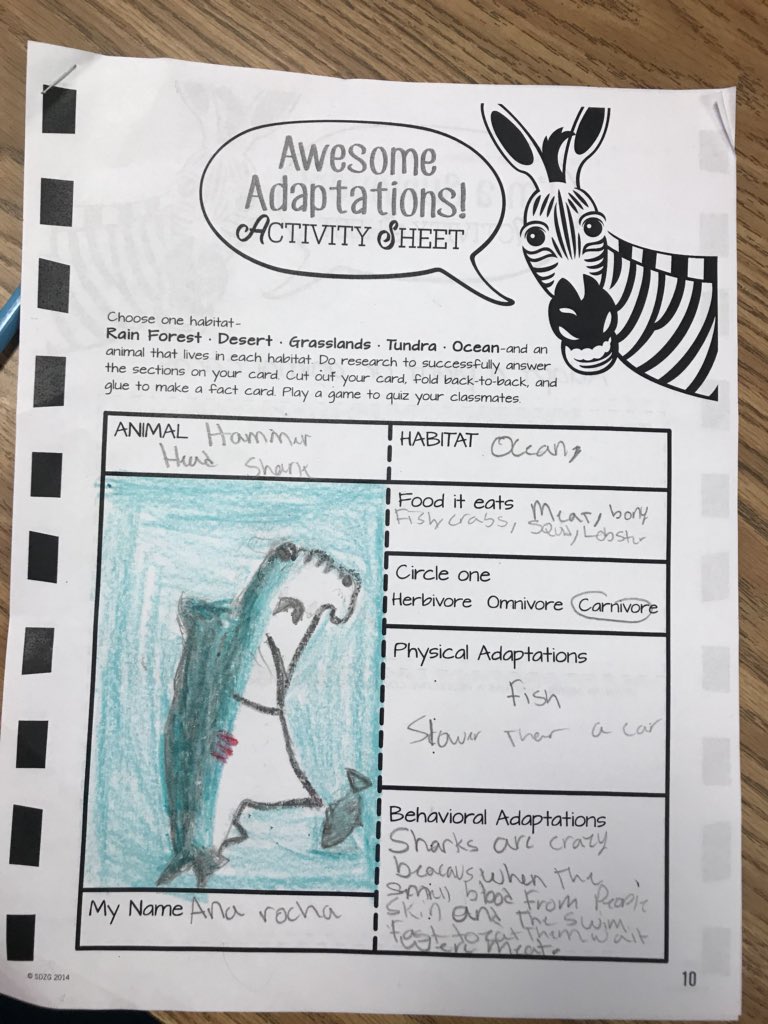 Awesome
Adaptations!
ACTIVITY SHEET
Choose one habitat-
Rain Forest · Desert · Grasslands · Tundra · Ocean-and an
animal that lives in each habitat. Do research to successfully answer
the sections on your card. Cut out your card, fold back-to-back, and
glue to make a fact card. Play a game to quiz your classmates.
ANIMAL Hammer
Head Shank
HABITAT Ocean,
Food it eats Meat, bony
Fish, crabs, Squid, Lobster
Circle one
Herbivore Omnivore Carnivore
Physical Adaptations
fish
Slower Then a car
Behavioral Adaptations
Sharks are crazy
beacaus when The
smill blood From People
skin and The swim
fast to eat Them wait
were meat.
My Name Ana rocha
© SDZG 2014
10